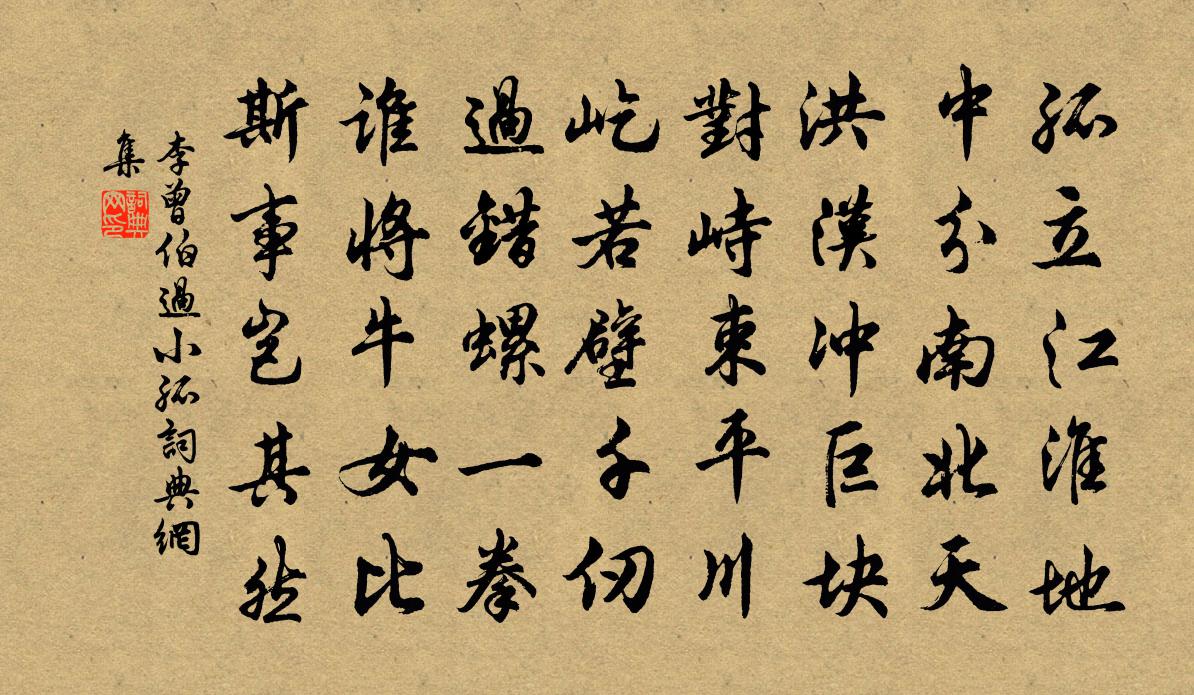 孤立江淮地
中分南北天
洪漢冲巨块
對峙束平川
屹若壁千仞
過錯螺一拳
誰將牛女比
斯事岂其然
李曾伯過小孤詞典網
集
詞典网印